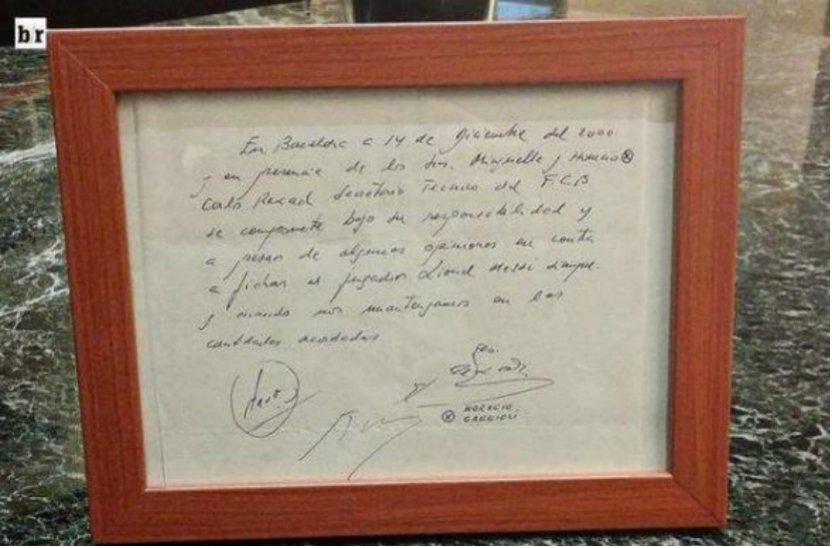 br
En Barcelona a 14 de Diciembre del 2000
y en presencia de los Srs. Minguella y Horacio
Carlos Rexach Secretario Técnico del F.C.B
se compromete bajo su responsabilidad y
a pesar de algunas opiniones en contra
a fichar al jugador Lionel Messi siempre
y cuando nos mantengamos en las
cantidades acordadas
HORACIO
GAGGIOLI